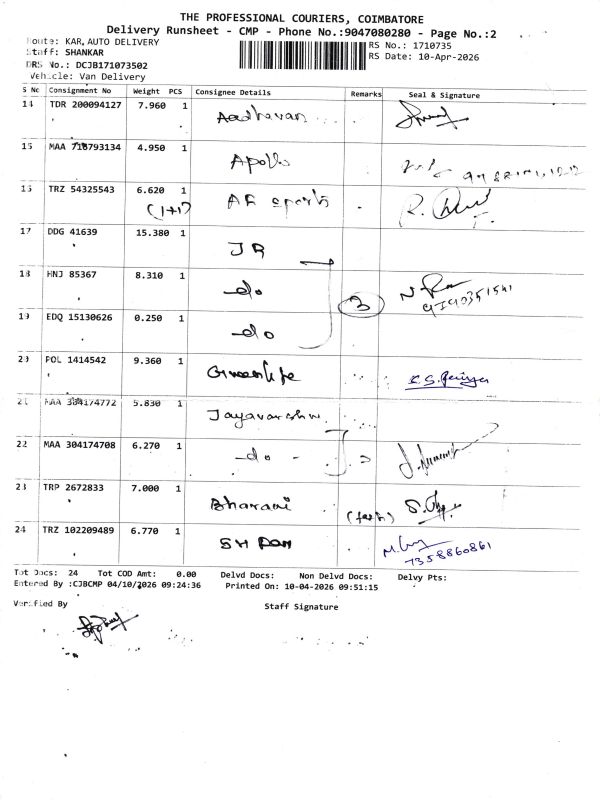 THE PROFESSIONAL COURIERS, COIMBATORE
Delivery Runsheet - CMP - Phone No.:9047080280 - Page No.:2
Route: KAR,AUTO DELIVERY
Staff: SHANKAR
DRS No.: DCJB171073502
Vehicle: Van Delivery
RS No.: 1710735
RS Date: 10-Apr-2026
S No Consignment No Weight PCS Consignee Details Remarks Seal & Signature
14 TDR 200094127 7.960 1 Aadhavan
15 MAA 718793134 4.950 1 Apollo
15 TRZ 54325543 6.620 1 AR sports
(1+1)
17 DDG 41639 15.380 1 JR
18 HNJ 85367 8.310 1 do
3
19 EDQ 15130626 0.250 1 do
20 POL 1414542 9.360 1 Greenlife
21 MAA 304174772 5.830 1
22 MAA 304174708 6.270 1 do -
23 TRP 2672833 7.000 1 Bharani
24 TRZ 102209489 6.770 1
7358860861
Tot Docs: 24 Tot COD Amt: 0.00 Delvd Docs: Non Delvd Docs: Delvy Pts:
Entered By :CJBCMP 04/10/2026 09:24:36 Printed On: 10-04-2026 09:51:15
Verified By Staff Signature